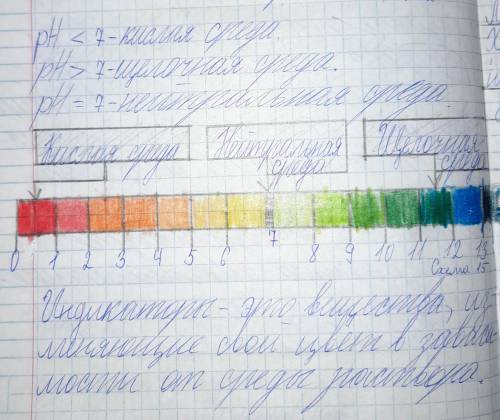 pH < 7 - кислая среда.
pH > 7 - щелочная среда.
pH = 7 - нейтральная среда.
Кислая среда Нейтральная среда Щелочная среда
0 1 2 3 4 5 6 7 8 9 10 11 12 13
Схема 15
Индикаторы - это вещества, из-
меняющие свой цвет в зависи
мости от среды раствора.